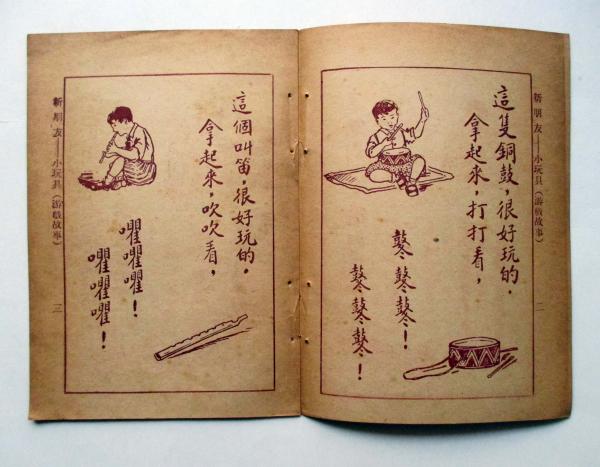 新朋友——小玩具(游戲故事) 二
這隻銅鼓,很好玩的,
拿起來,打打看,
鼕鼕鼕!
鼕鼕鼕!
這個叫笛,很好玩的,
拿起來,吹吹看,
嚁嚁嚁!
嚁嚁嚁!
新朋友——小玩具(游戲故事) 三